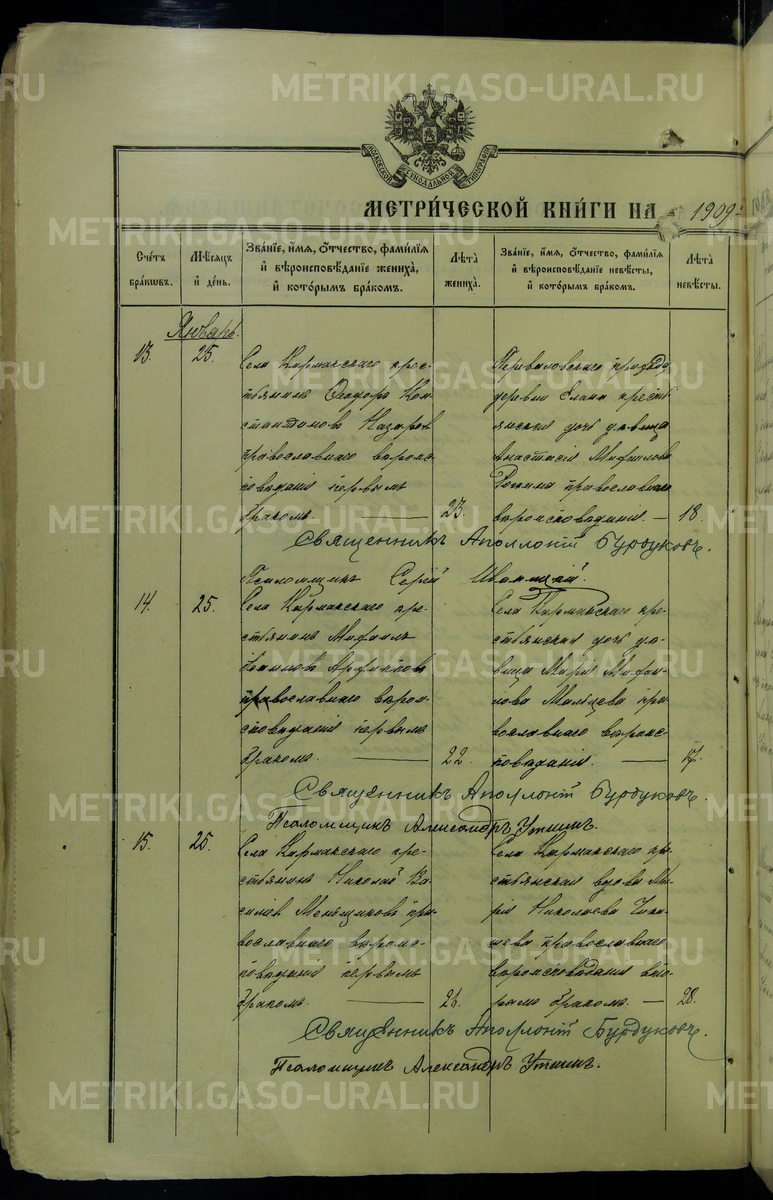 METRIKI.GASO-URAL.RU
МОСКОВСКОЙ СУНОДАЛЬНОЙ ТИПОГРАФІИ
МЕТРИ́ЧЕСКОЙ КНИ́ГИ НА 1909
Сче́тъ бра́кѡвъ.
Мѣ́сѧцъ и҆ де́нь.
Зва́нїе, и҆́мѧ, ѻ҆́тчество, фами́лїѧ и҆ вѣроисповѣ́данїе жениха̀, и҆ кото́рымъ бра́комъ.
Лѣ́та жениха̀.
Зва́нїе, и҆́мѧ, ѻ҆́тчество, фами́лїѧ и҆ вѣроисповѣ́данїе невѣ́сты, и҆ кото́рымъ бра́комъ.
Лѣ́та невѣ́сты.
Январь.
13.
25.
Села Кармакскаго крес-
тьянинъ Ѳеодоръ Кон-
стантиновъ Назаровъ
православнаго вѣроис-
повѣданія первымъ
бракомъ.
23.
приход
деревни Елана кресть
янская дочь дѣвица
Анастасія Михаилова
православнаго
вѣроисповѣданія.
18.
Священникъ Аполлоній Бурдуковъ.
Псаломщикъ Сергій
14.
25.
Села Кармакскаго кре-
стьянинъ Михаилъ
православнаго вѣрои-
сповѣданія первымъ
бракомъ.
22.
Села Кармакскаго кре-
стьянская дочь дѣ-
вица Марія Михаи-
лова Мальцева пра-
вославнаго вѣроис-
повѣданія.
17.
Священникъ Аполлоній Бурдуковъ.
Псаломщикъ Александръ
15.
25.
Села Кармакскаго кре-
стьянинъ Николай Ва-
силіев Меньщиковъ пра-
вославнаго вѣроис-
повѣданія первымъ
бракомъ.
Села Кармакскаго кр-
стьянская вдова Ма-
рія Николаева
православнаго
вѣроисповѣданія вто-
рымъ бракомъ.
28.
Священникъ Аполлоній Бурдуковъ.
Псаломщикъ Александръ